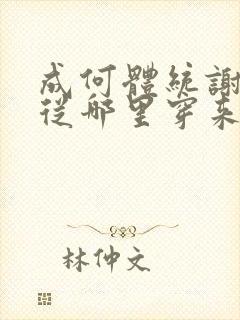 成何體統謝
從哪里穿來
林仲文